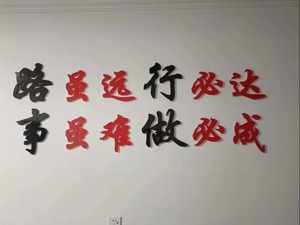 路虽远行必达
事虽难做必成